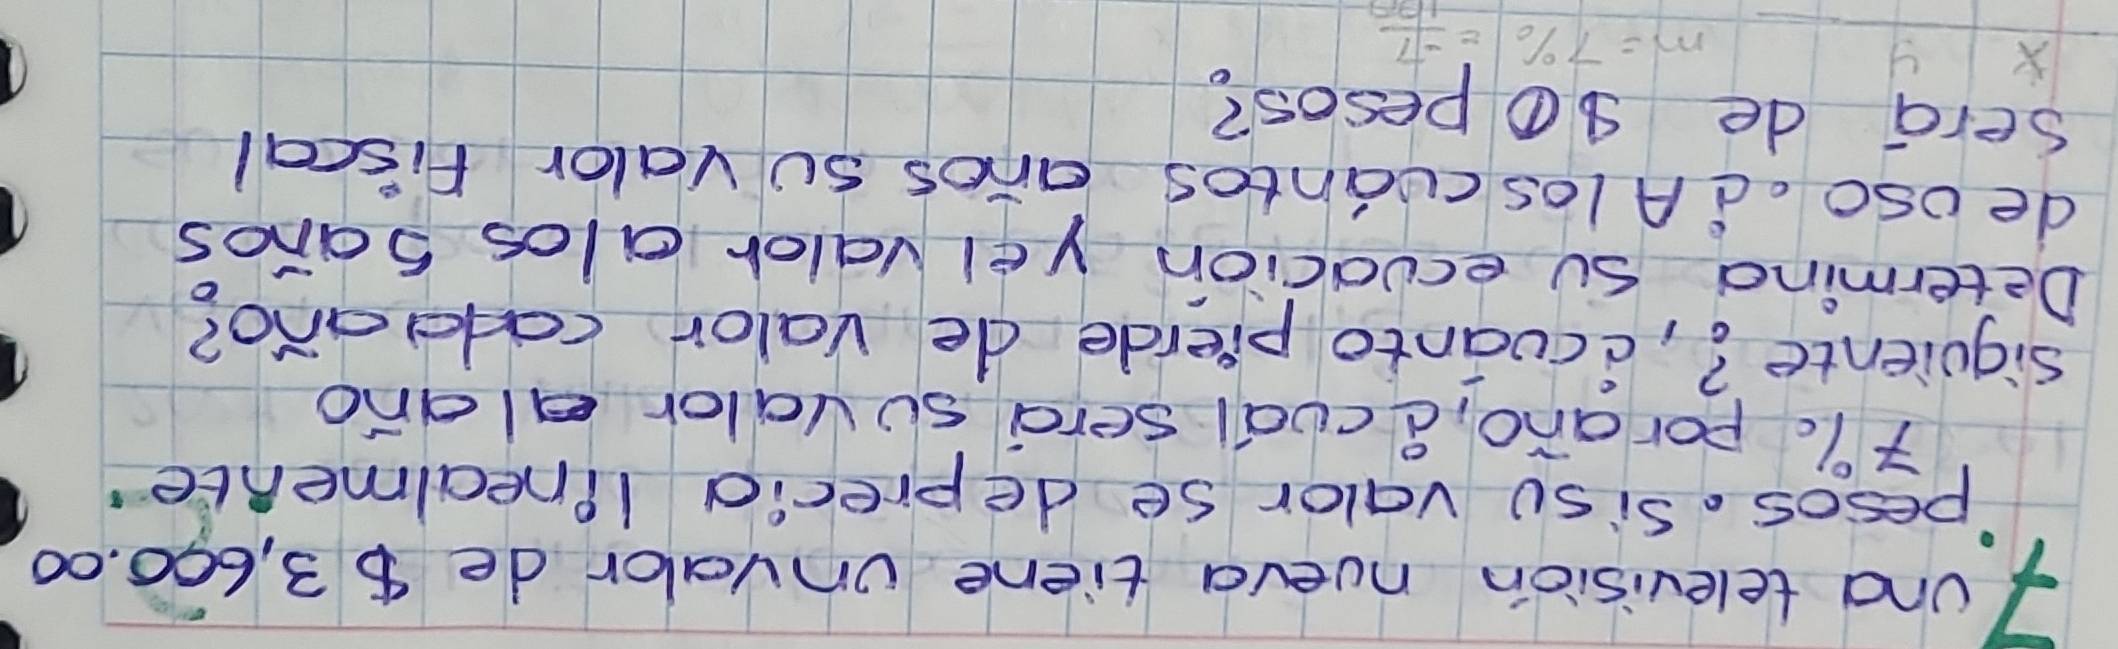 7. Una televisión nueva tiene un valor de $ 3,600.00
pesos. Si su valor se deprecia linealmente
7% por año, ¿cuál será su valor al año
siguiente?, ¿cuánto pierde de valor cada año?
Determina su ecuación y el valor a los 5 años
de uso. ¿A los cuántos años su valor Fiscal
será de $0 pesos?
x y m = 7% = -7/100